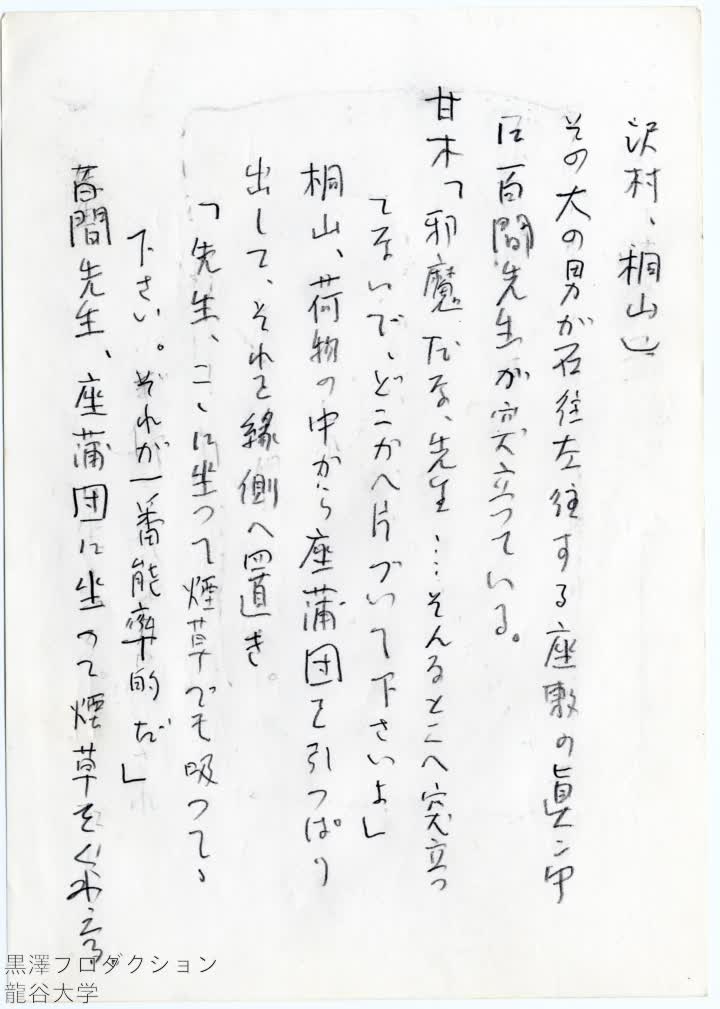 沢村、桐山）
その大の男が右往左往する座敷の眞ン中
に百間先生が突立っている。
甘木「邪魔だな、先生…そんなとこへ突立っ
てないで、どこかへ片づいて下さいよ」
桐山、荷物の中から座蒲団を引っぱり
出して、それを縁側へ置き。
「先生、こゝに坐って煙草でも吸って、
下さい。それが一番能率的だ」
百間先生、座蒲団に坐って煙草をくわえる。
黒澤プロダクション
龍谷大学